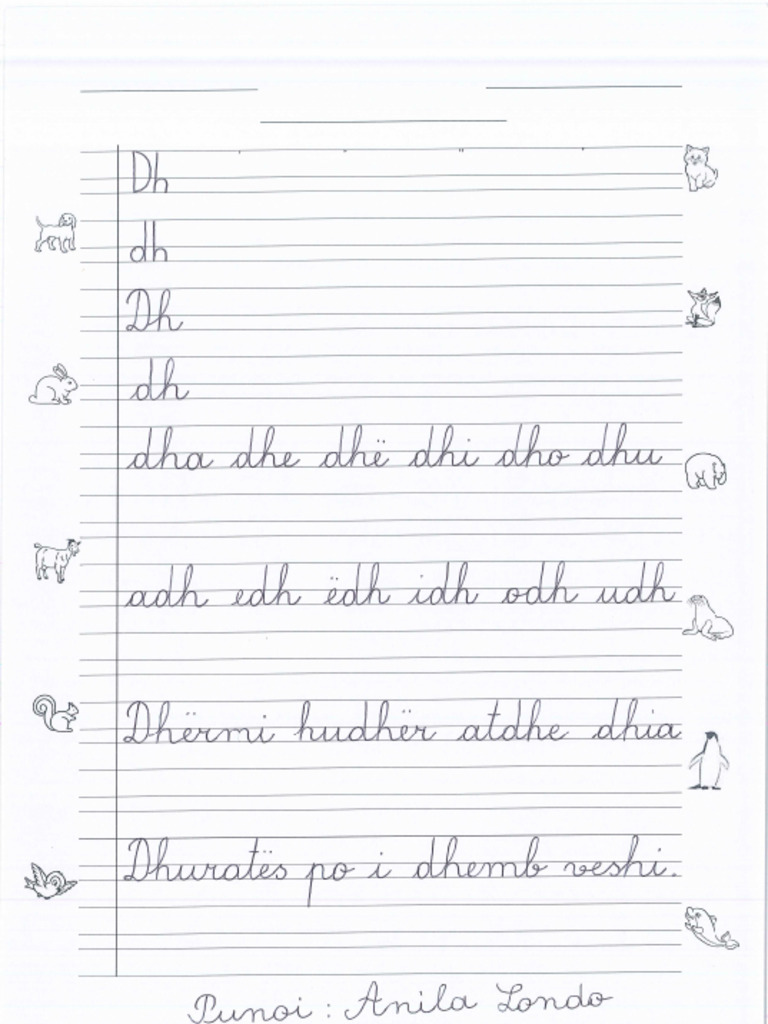 Dh
dh
Dh
dh
dha dhe dhë dhi dho dhu
adh edh ëdh idh odh udh
Dhërmi hudhër atdhe dhia
Dhuratës po i dhemb veshi.
Punoi : Anila Londo